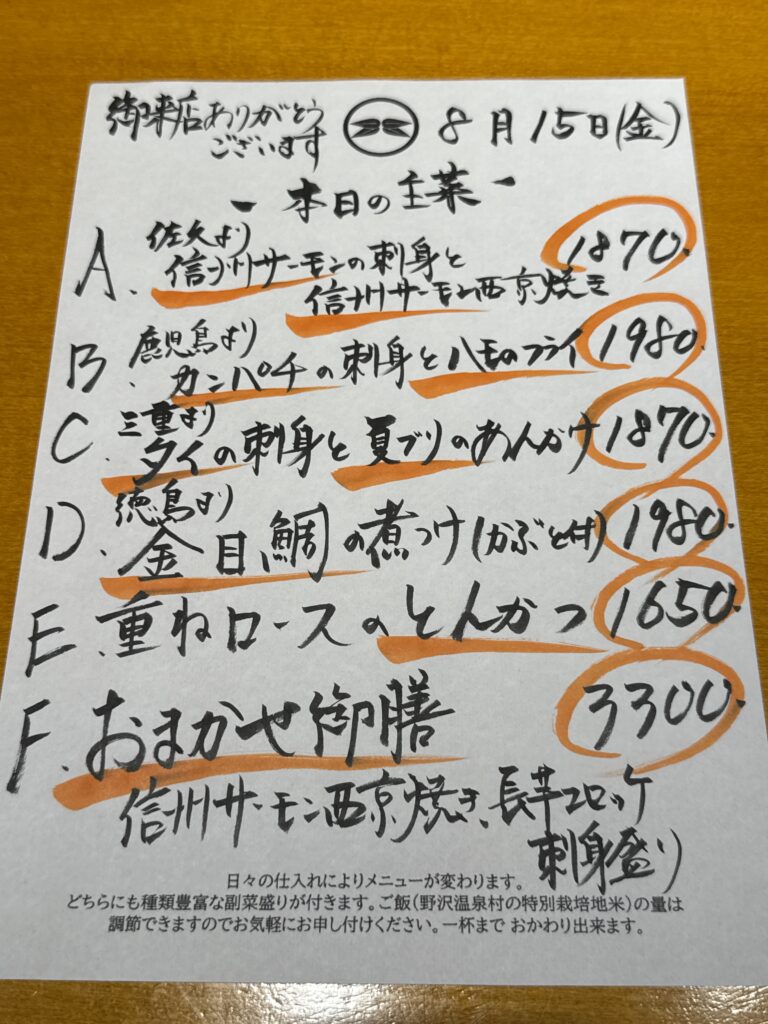 御来店ありがとう
ございます
8月15日(金)
- 本日の主菜 -
A. 佐久より
信州サーモンの刺身と
信州サーモン西京焼き
1870.
B. 鹿児島より
カンパチの刺身とハモのフライ 1980.
C. 三重より
タイの刺身と夏ブリのあんかけ 1870.
D. 徳島より
金目鯛の煮つけ(かぶと付) 1980.
E. 重ねロースのとんかつ 1650.
F. おまかせ御膳 3300.
信州サーモン西京焼き、長芋コロッケ
刺身盛り
日々の仕入れによりメニューが変わります。
どちらにも種類豊富な副菜盛りが付きます。ご飯(野沢温泉村の特別栽培地米)の量は
調節できますのでお気軽にお申し付けください。一杯まで おかわり出来ます。